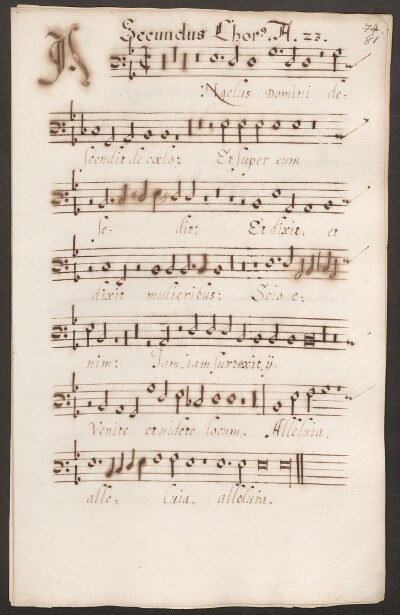 Secundus Chorꝰ. A. 23.
74
81
ANgelus Domini de-
scendit de cœlo: Et super eum
se- dit: Et dixit, et
dixit mulieribus: Scio e-
nim: Jam, iam surrexit, ij
Venite et uidete locum. Alleluia.
alle- luia, alleluia.